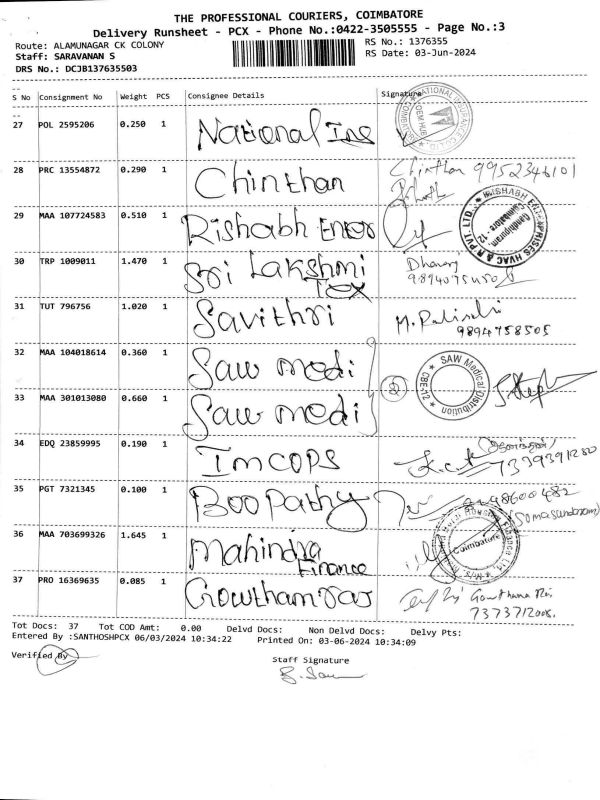 THE PROFESSIONAL COURIERS, COIMBATORE
Delivery Runsheet - PCX - Phone No.:0422-3505555 - Page No.:3
Route: ALAMUNAGAR CK COLONY
RS No.: 1376355
Staff: SARAVANAN S
RS Date: 03-Jun-2024
DRS No.: DCJB137635503
S No Consignment No Weight PCS Consignee Details Signature
27 POL 2595206 0.250 1 National Ins
28 PRC 13554872 0.290 1 Chinthan Chinthan 9952346101
29 MAA 107724583 0.510 1 Rishabh Enter
RISHABH ENTERPRISES HVAC & R PVT. LTD.
Gandhipuram
Coimbatore - 12
30 TRP 1009011 1.470 1 Sri Lakshmi
Tex
31 TUT 796756 1.020 1 Savithri
9894758505
32 MAA 104018614 0.360 1 Saw medi
33 MAA 301013080 0.660 1 Saw medi
②
SAW Medical Distribution
CBE-12
34 EDQ 23859995 0.190 1 Imcops
7339391280
35 PGT 7321345 0.100 1 Boopathy
(Somasundaram)
36 MAA 703699326 1.645 1 Mahindra
Finance
Coimbatore
37 PRO 16369635 0.085 1 Gowthamraj
7373712008.
Tot Docs: 37 Tot COD Amt: 0.00 Delvd Docs: Non Delvd Docs: Delvy Pts:
Entered By :SANTHOSHPCX 06/03/2024 10:34:22 Printed On: 03-06-2024 10:34:09
Verified By
Staff Signature